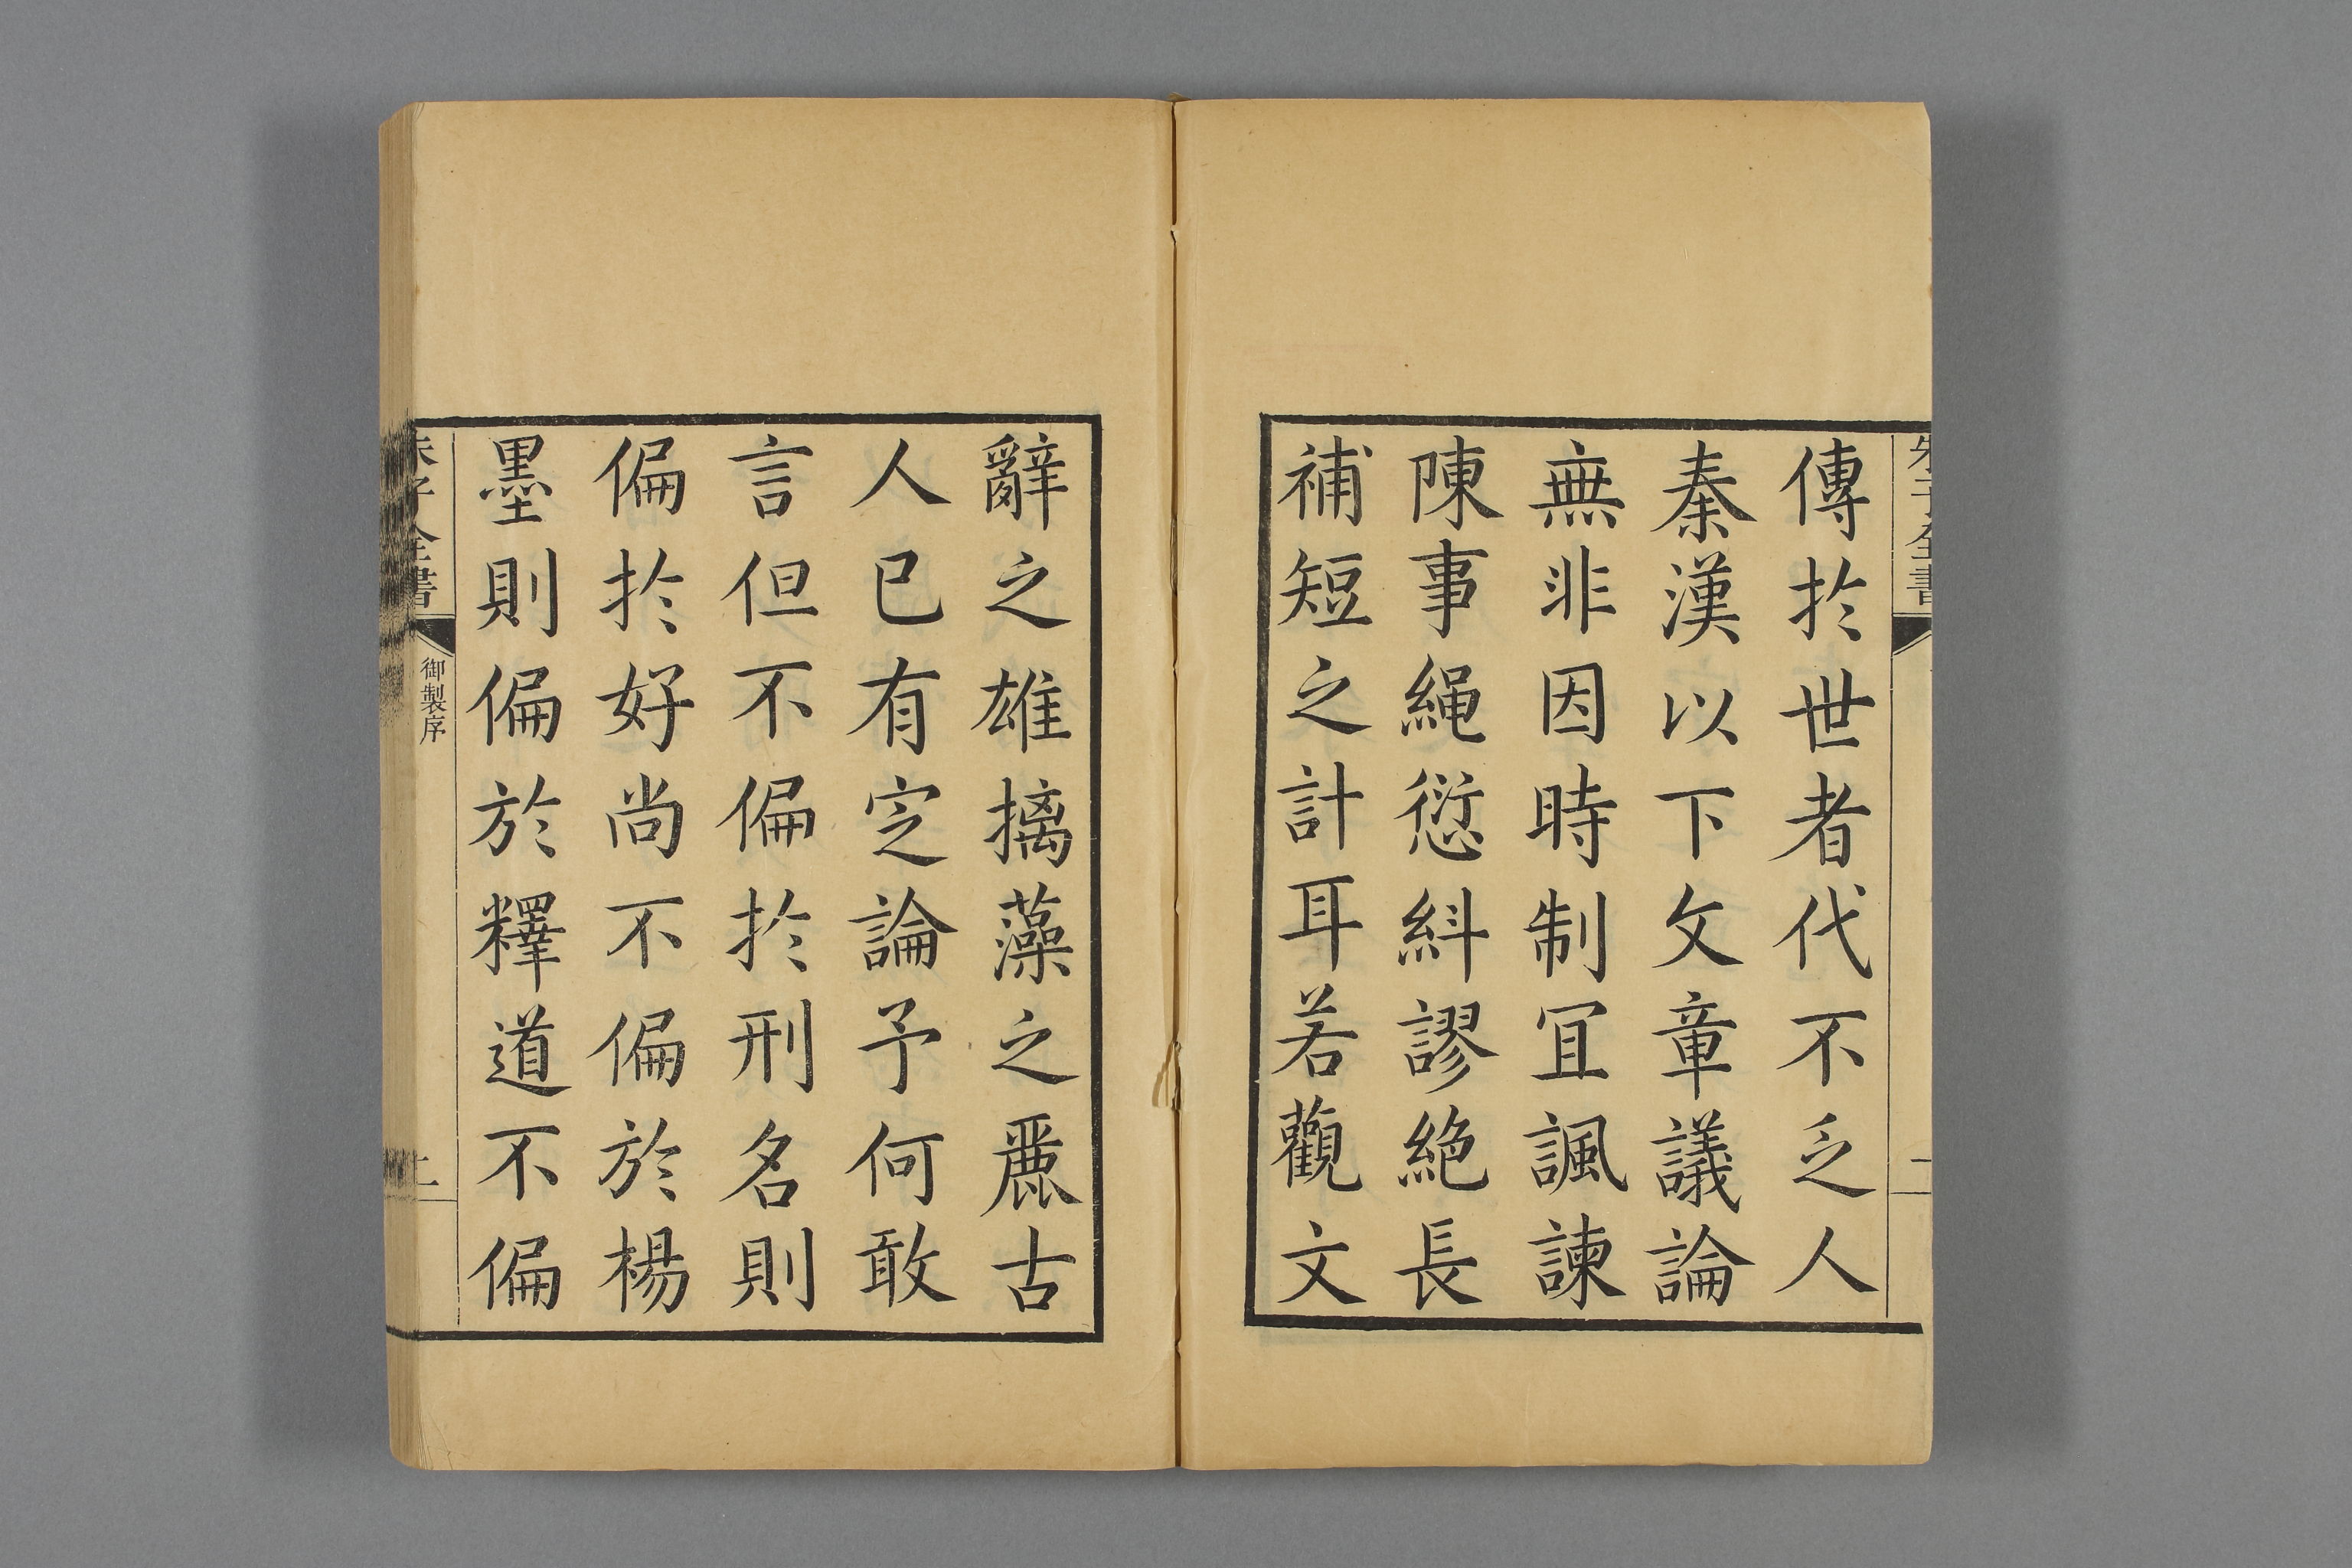 朱子全書
二
傳於世者代不乏人
秦漢以下文章議論
無非因時制宜諷諫
陳事繩愆糾謬絶長
補短之計耳若觀文
辭之雄摛藻之麗古
人已有定論予何敢
言但不偏於刑名則
偏於好尚不偏於楊
墨則偏於釋道不偏
朱子全書
御製序